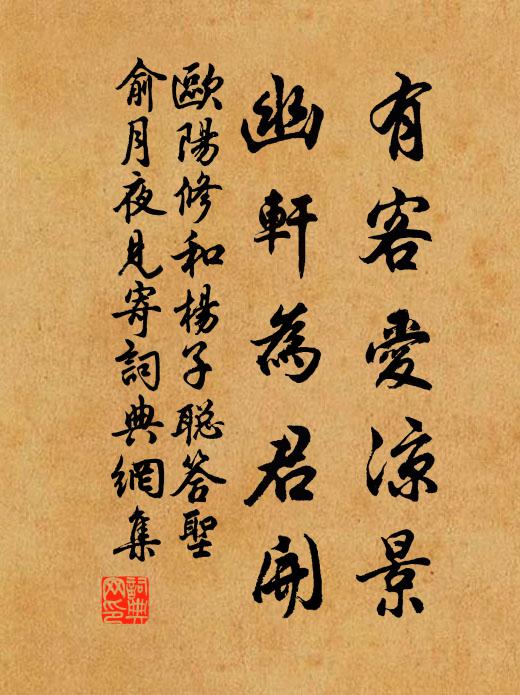 有客愛涼景
幽軒為君開
歐陽修和楊子聡答聖
俞月夜見寄詞典網集
詞典
网印